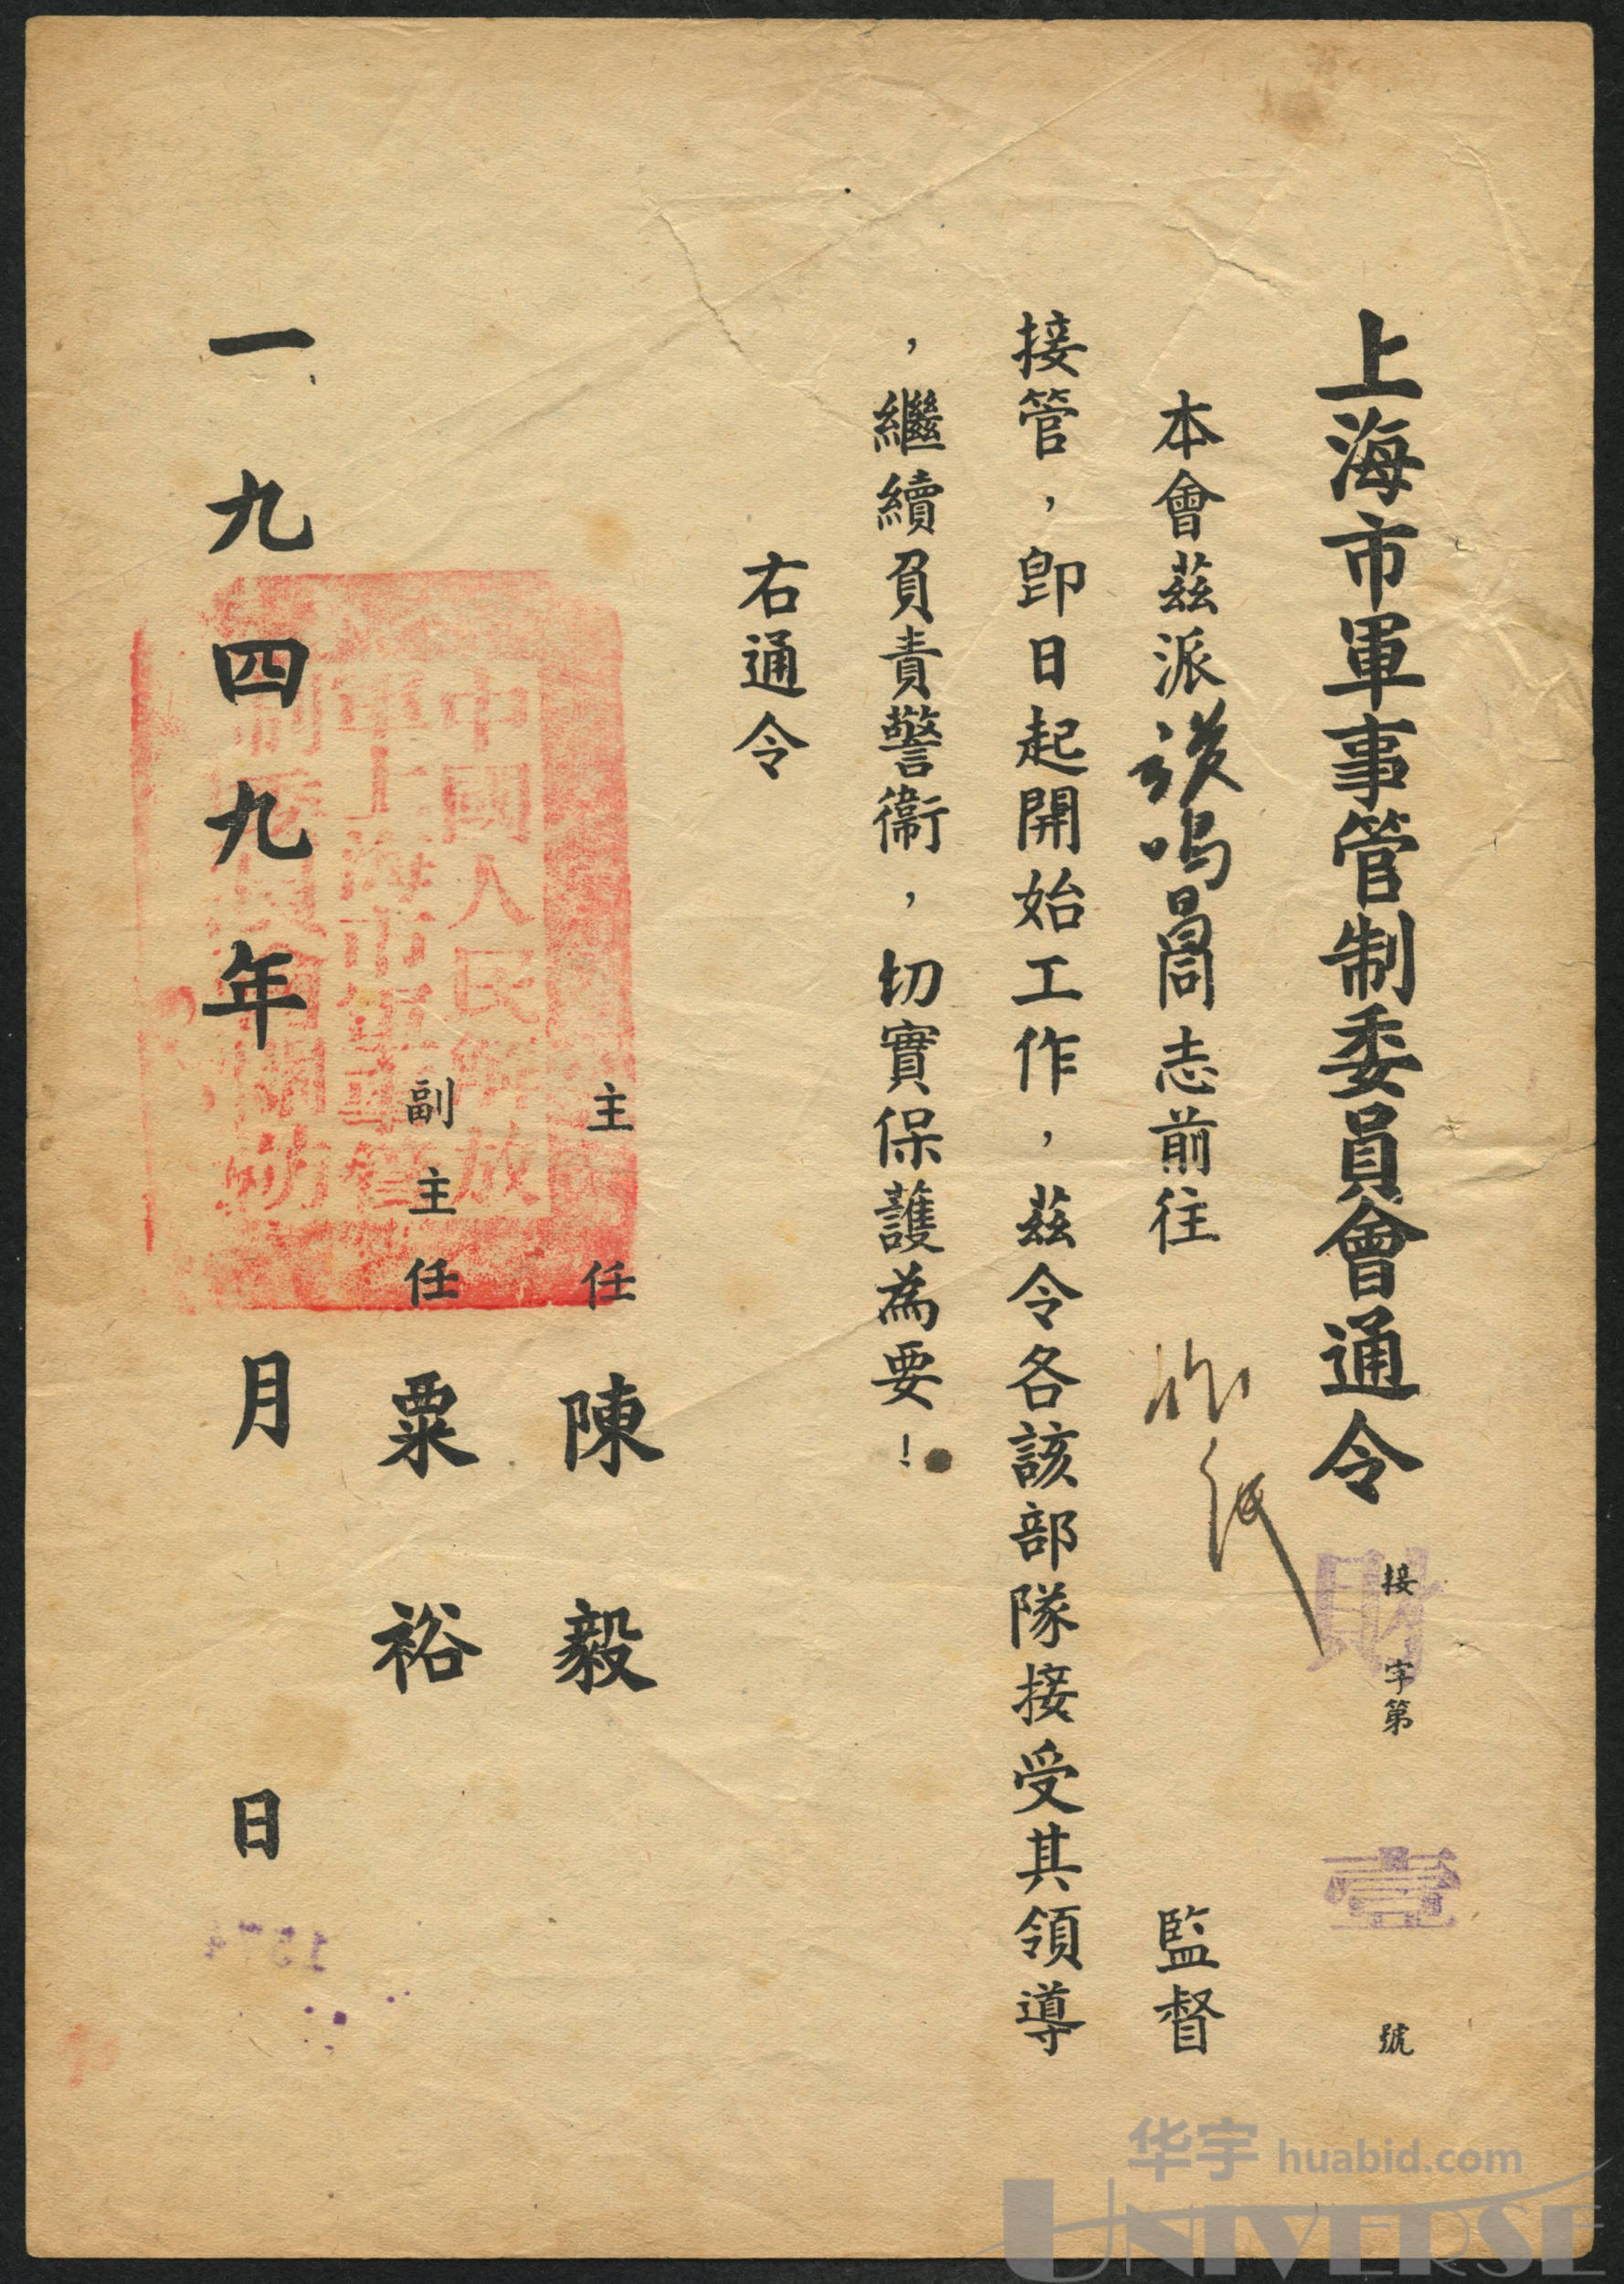 上海市軍事管制委員會通令
接財字第壹號
本會茲派 鳴昌同志前往 監督
接管，即日起開始工作，茲令各該部隊接受其領導
，繼續負責警衞，切實保護為要！
右通令
主任 陳毅
副主任 粟裕
一九四九年 月 日
中國人民解放
軍上海市軍事管
制委員會關防
华宇 huabid.com
UNIVERSE